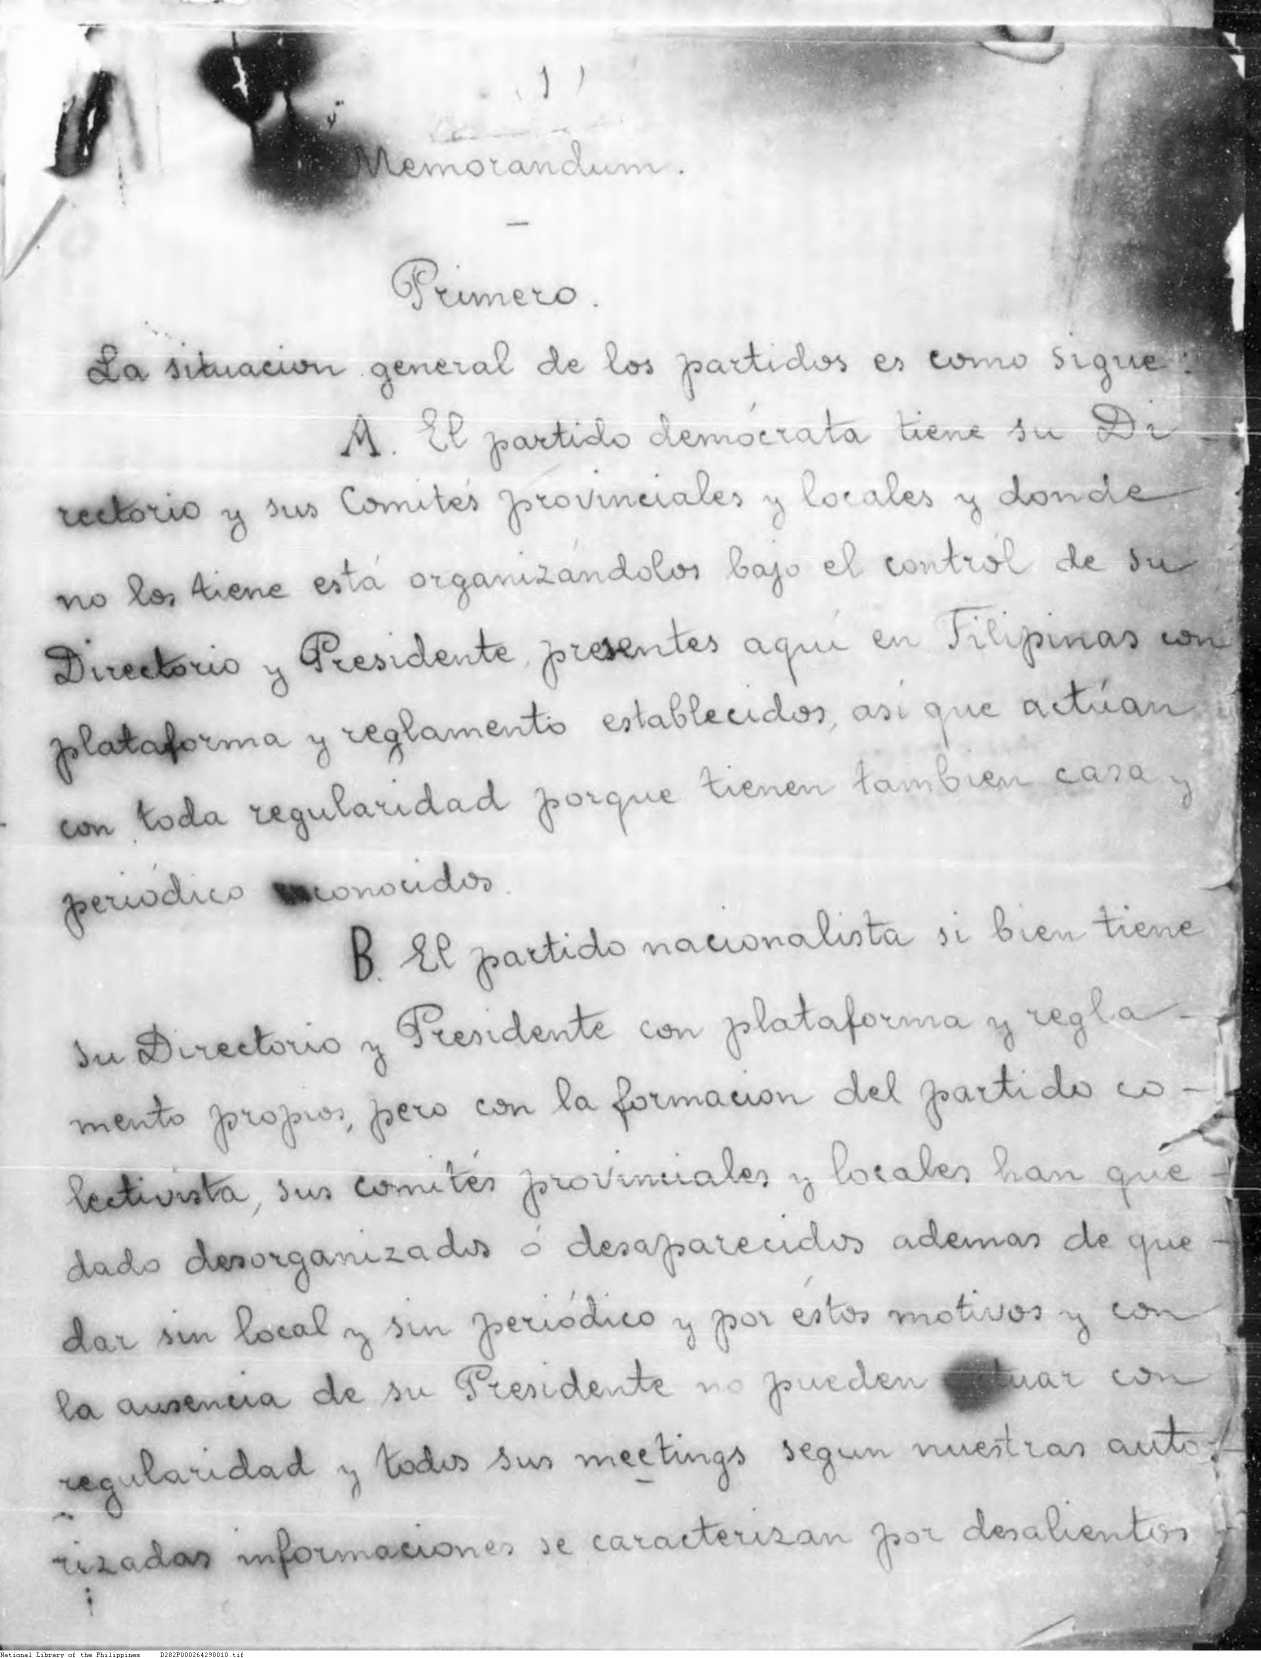 (1)
Memorandum.
Primero.
La situacion general de los partidos es como sigue:
A. El partido demócrata tiene su Di-
rectorio y sus Comités provinciales y locales y donde
no los tiene está organizándolos bajo el contról de su
Directorio y Presidente presentes aquí en Filipinas con
plataforma y reglamento establecidos, así que actúan
con toda regularidad porque tienen tambien casa y
periódico conocidos.
B. El partido nacionalista si bien tiene
su Directorio y Presidente con plataforma y regla-
mento propios, pero con la formacion del partido co-
lectivista, sus comités provinciales y locales han que-
dado desorganizados ó desaparecidos ademas de que-
dar sin local y sin periódico y por éstos motivos y con
la ausencia de su Presidente no pueden actuar con
regularidad y todos sus meetings segun nuestras auto-
rizadas informaciones se caracterizan por desalientos
National Library of the Philippines D282P000264298010.tif